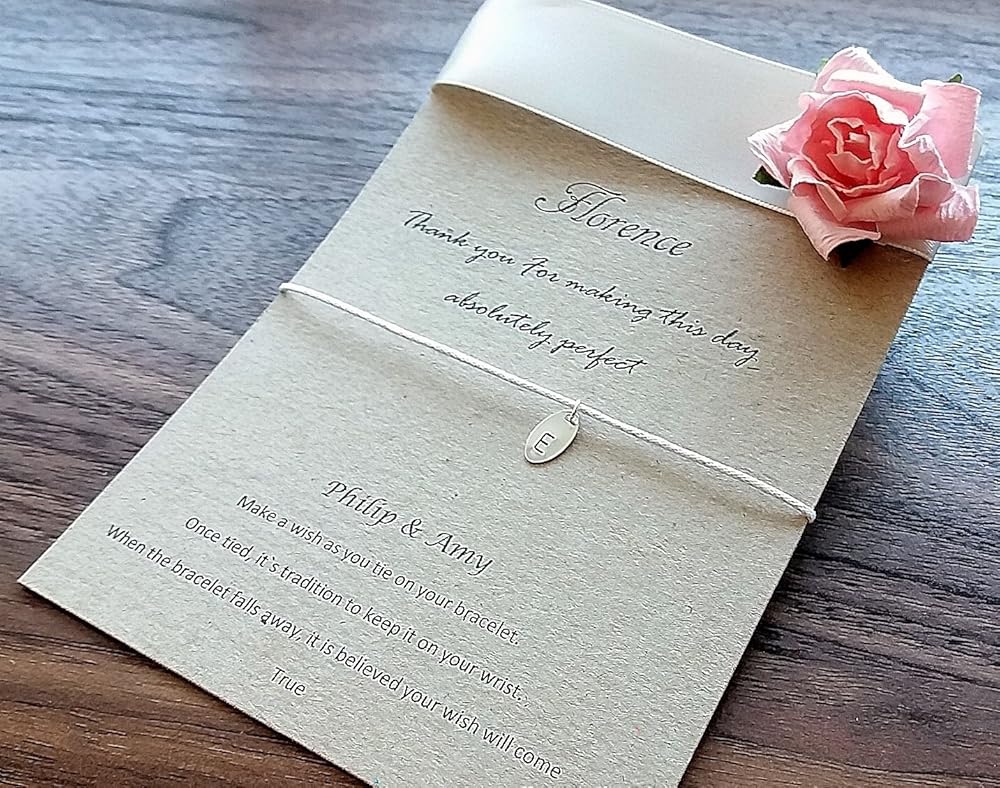 Florence
Thank you For making this day
absolutely perfect
E
Philip & Amy
Make a wish as you tie on your bracelet.
Once tied, it`s tradition to keep it on your wrist..
When the bracelet falls away, it is believed your wish will come
True